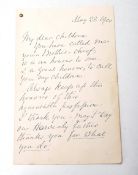 May 28, 190
My dear children
You have called me
your Mother. Oh, it
is an honour to me
a great honour, to call
you my children.
Always keep up the
honour of this
grateful profession.
Thank you, may I say
our Heavenly father
thanks you for what
you do.